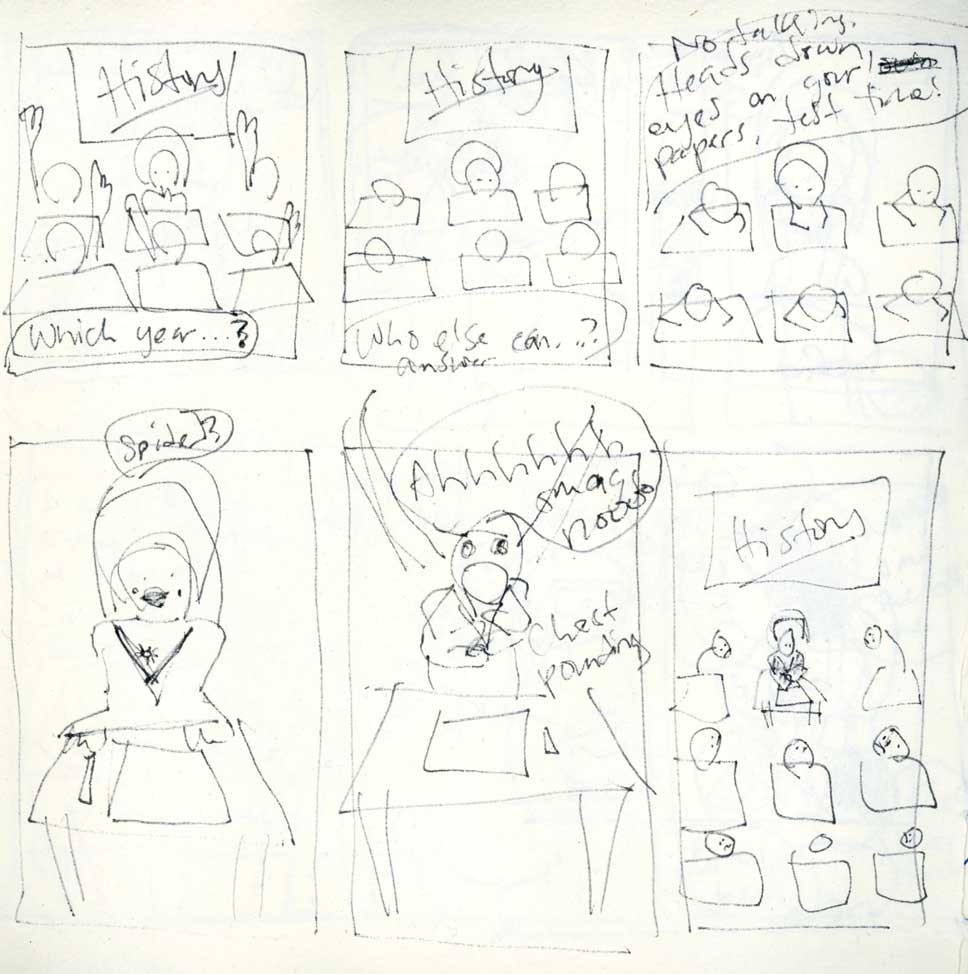 History
Which year...?
History
Who else can...?
answer
No talking.
Heads down,
eyes on your
papers, test time!
Spider?
Ahhhhhhh
nooooo
Chest
pounding
History